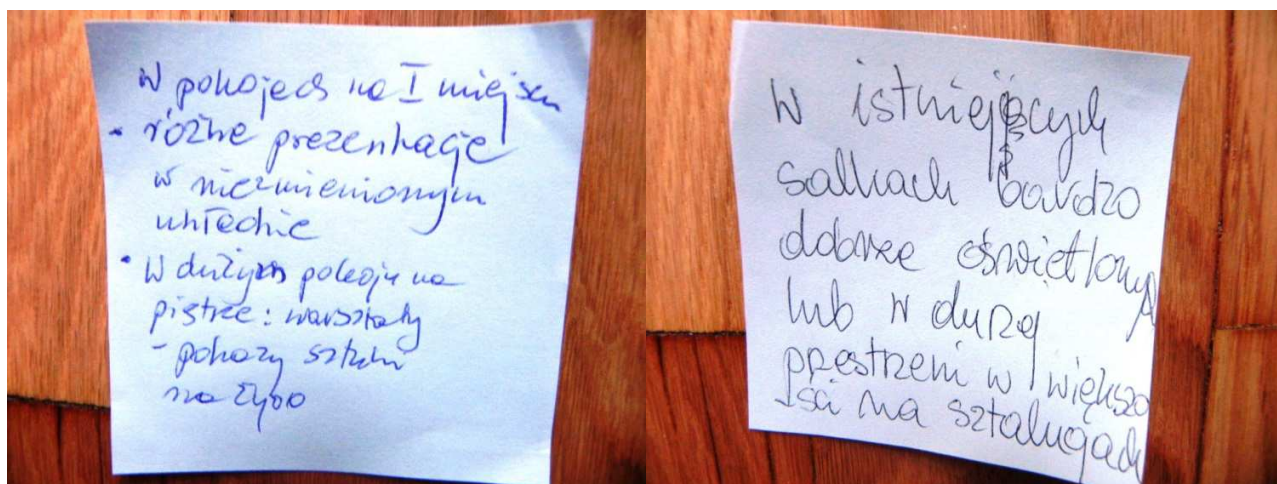 W pokojach na I miejscu
• różne prezentacje
w niezmienionym
układzie
• W dużym pokoju na
piętrze: warsztaty
- pokazy sztuki
na żywo
W istniejących
salkach bardzo
dobrze oświetlonych
lub w dużą
przestrzeni w większo
ści na sztalugach